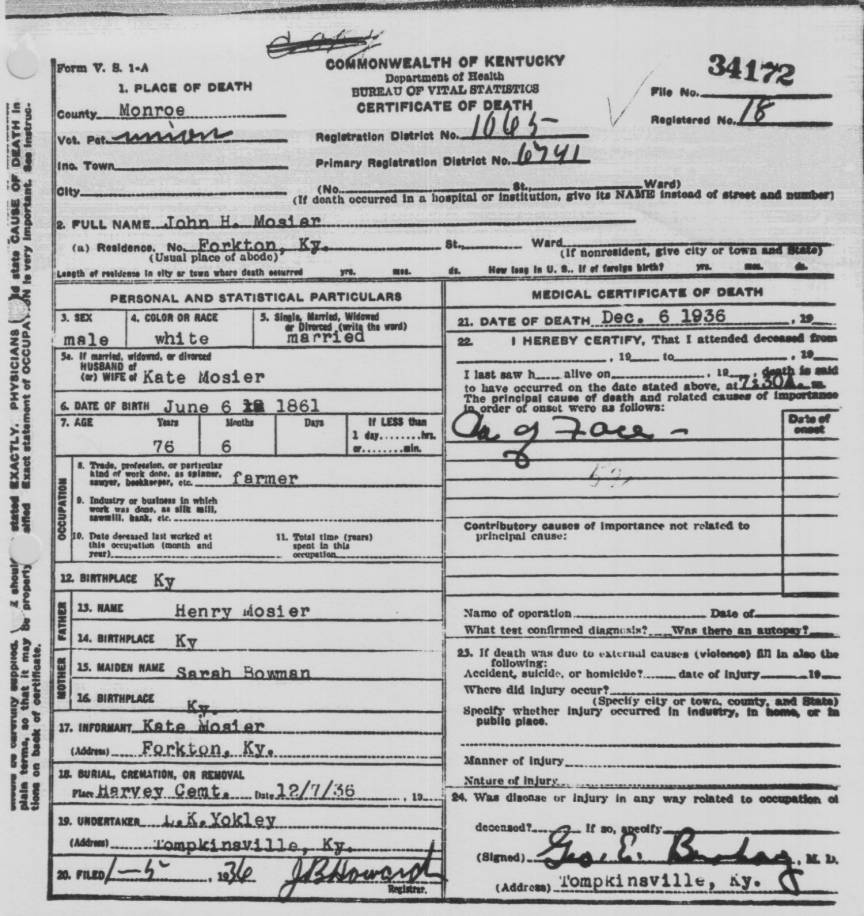 COMMONWEALTH OF KENTUCKY
Form V. S. 1-A
Department of Health
34172
1. PLACE OF DEATH
BUREAU OF VITAL STATISTICS
File No.
County Monroe
CERTIFICATE OF DEATH
Registered No. 18
Vot. Pct. Union
Registration District No. 1065
Inc. Town
Primary Registration District No. 6741
City
(No. St., Ward)
(If death occurred in a hospital or institution, give its NAME instead of street and number)
2. FULL NAME John H. Mosier
(a) Residence. No. Forkton, Ky. St., Ward
(Usual place of abode) (If nonresident, give city or town and State)
Length of residence in city or town where death occurred yrs. mos. ds. How long in U. S., if of foreign birth? yrs. mos. ds.
PERSONAL AND STATISTICAL PARTICULARS
3. SEX
male
4. COLOR OR RACE
white
5. Single, Married, Widowed
or Divorced (write the word)
married
5a. If married, widowed, or divorced
HUSBAND of
(or) WIFE of Kate Mosier
6. DATE OF BIRTH June 6 1861
7. AGE Years Months Days If LESS than
1 day,........hrs.
76 6 or........min.
OCCUPATION
8. Trade, profession, or particular
kind of work done, as spinner,
sawyer, bookkeeper, etc. farmer
9. Industry or business in which
work was done, as silk mill,
sawmill, bank, etc.
10. Date deceased last worked at
this occupation (month and
year)
11. Total time (years)
spent in this
occupation
12. BIRTHPLACE Ky
FATHER
13. NAME Henry Mosier
14. BIRTHPLACE Ky
MOTHER
15. MAIDEN NAME Sarah Bowman
16. BIRTHPLACE Ky.
17. INFORMANT Kate Mosier
(Address) Forkton, Ky.
18. BURIAL, CREMATION, OR REMOVAL
Place Harvey Cemt. Date 12/7/36, 19
19. UNDERTAKER L.K.Yokley
(Address) Tompkinsville, Ky.
20. FILED 1-5, 1936 J B Howard
Registrar.
MEDICAL CERTIFICATE OF DEATH
21. DATE OF DEATH Dec. 6 1936, 19
22. I HEREBY CERTIFY, That I attended deceased from
, 19 to , 19
I last saw h alive on , 19 death is said
to have occurred on the date stated above, at 7:30A. m.
The principal cause of death and related causes of importance
in order of onset were as follows:
Date of
onset
Ca of Face -
Contributory causes of importance not related to
principal cause:
Name of operation Date of
What test confirmed diagnosis? Was there an autopsy?
23. If death was due to external causes (violence) fill in also the
following:
Accident, suicide, or homicide? date of injury 19
Where did injury occur?
(Specify city or town, county, and State)
Specify whether injury occurred in industry, in home, or in
public place.
Manner of injury
Nature of injury
24. Was disease or injury in any way related to occupation of
deceased? If so, specify
(Signed) Geo. E. M. D.
(Address) Tompkinsville, Ky.
stated EXACTLY. PHYSICIANS state CAUSE OF DEATH in
Exact statement of OCCUPATION is very important. See instruc-
be carefully supplied.
plain terms, so that it may be properly
tions on back of certificate.